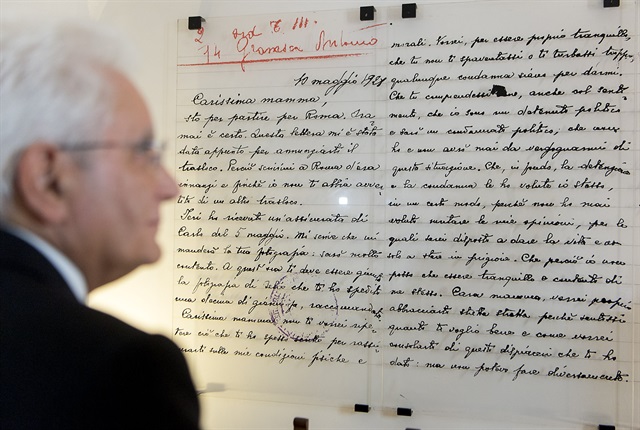 2 3rd T. M.
14 Gramsci Antonio
10 maggio 1928
Carissima mamma,
sto per partire per Roma. Ora
mai è certo. Questa lettera mi è stata
data appunto per annunziarti il
trasloco. Perciò scrivimi a Roma d'ora
innanzi e finché io non ti abbia avver-
tito di un altro trasloco.
Ieri ho ricevuto un'assicurata di
Carlo del 5 maggio. Mi scrive che mi
manderà la tua fotografia: sarò molto
contento. A quest'ora ti deve essere giunta
la fotografia di Delio che ti ho spedito
una decina di giorni fa, raccomandata.
Carissima mamma, non ti vorrei ripe-
tere ciò che ti ho spesso scritto per rassi-
curarti sulle mie condizioni fisiche e
morali. Vorrei, per essere proprio tranquillo,
che tu non ti spaventassi o ti turbassi troppo
qualunque condanna siano per darmi.
Che tu comprendessi bene, anche col senti-
mento, che io sono un detenuto politico
e sarò un condannato politico, che non
ho e non avrò mai da vergognarmi di
questa situazione. Che, in fondo, la detenzione
e la condanna le ho volute io stesso,
in un certo modo, perché non ho mai
voluto mutare le mie opinioni, per le
quali sarei disposto a dare la vita e non
solo a stare in prigione. Che perciò io non
posso che essere tranquillo e contento di
me stesso. Cara mamma, vorrei proprio
abbracciarti stretta stretta perché sentissi
quanto ti voglio bene e come vorrei
consolarti di questo dispiacere che ti ho
dato: ma non potevo fare diversamente.